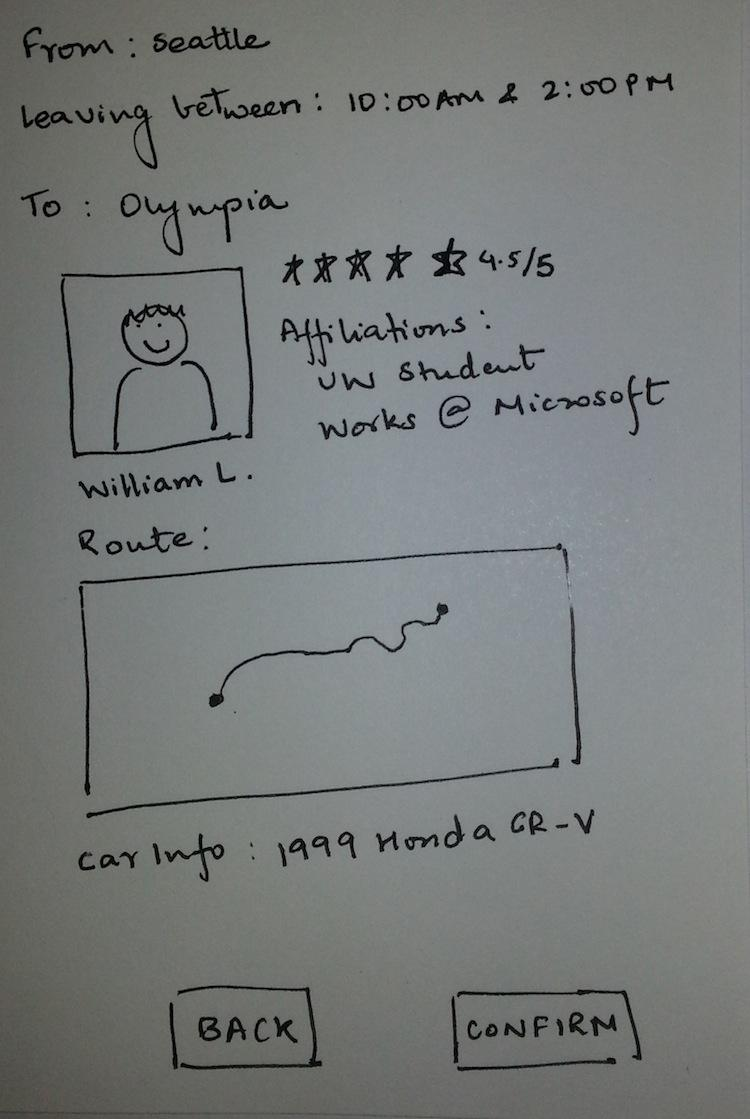 From: Seattle
Leaving between: 10:00AM & 2:00PM
To: Olympia
4.5/5
Affiliations:
UW Student
Works @ Microsoft
William L.
Route:
Car Info: 1999 Honda CR-V
BACK
CONFIRM